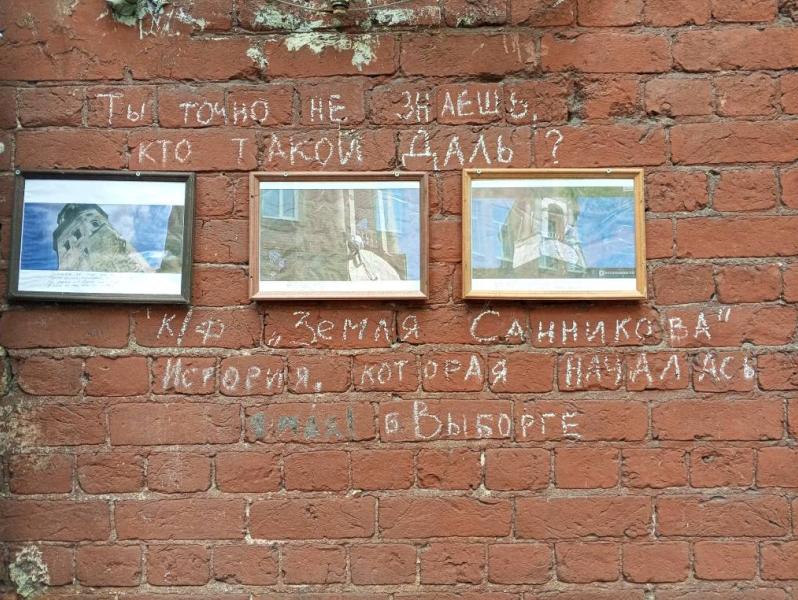 Ты точно не знаешь,
кто такой Даль?
"к/ф „Земля Санникова"
История, которая началась
в Выборге